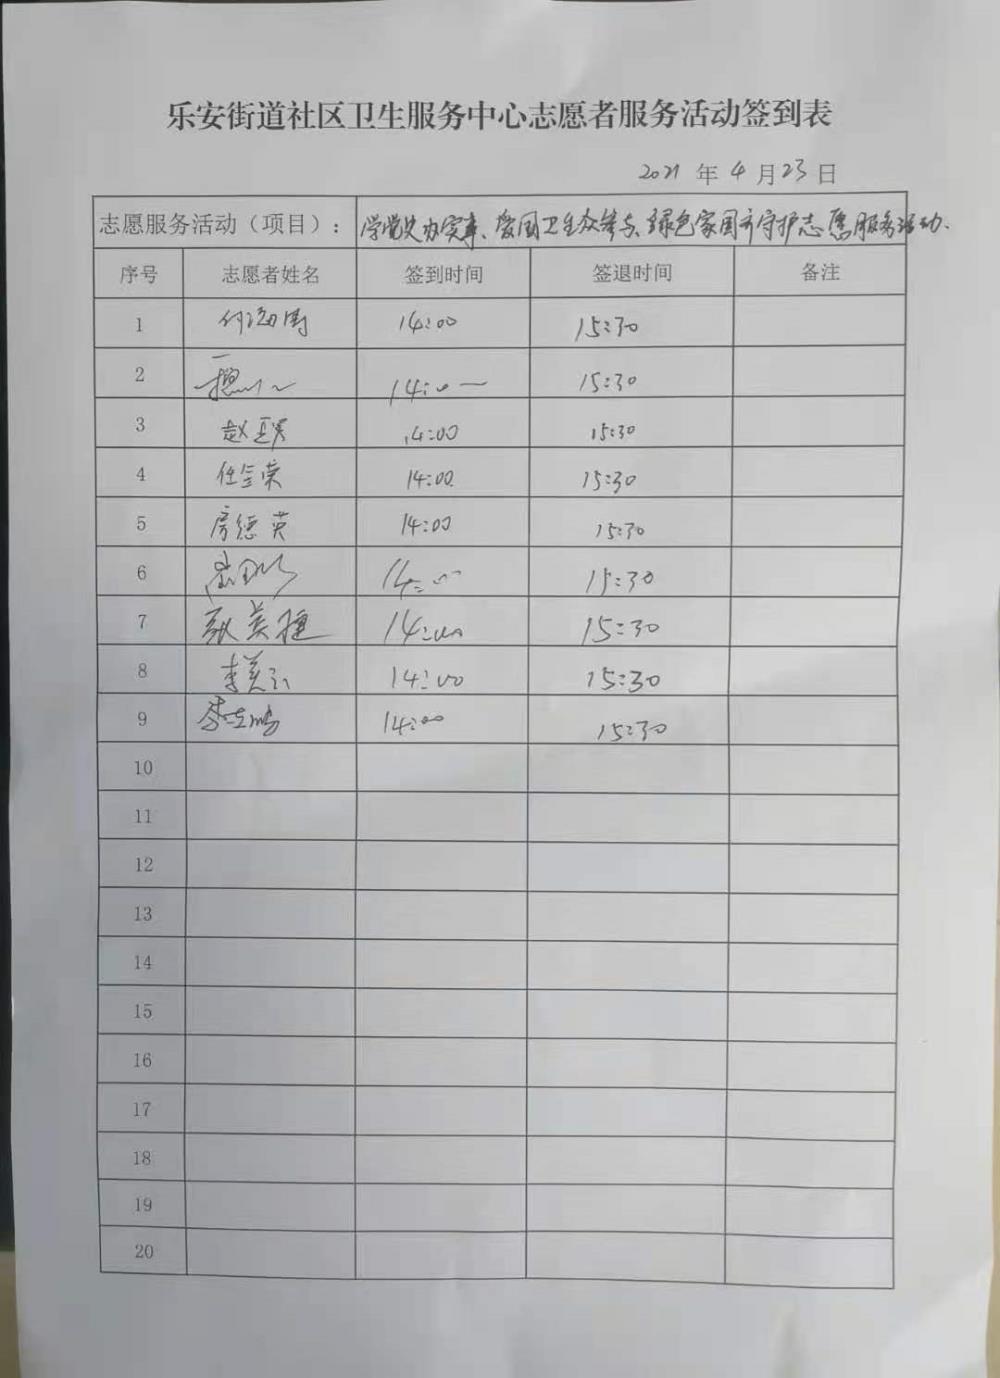 乐安街道社区卫生服务中心志愿者服务活动签到表
2021 年 4 月 23 日
志愿服务活动（项目）： 学党史办实事、爱国卫生众参与、绿色家园齐守护志愿服务活动.
序号 志愿者姓名 签到时间 签退时间 备注
1 14:00 15:30
2 14:00 15:30
3 14:00 15:30
4 任金荣 14:00 15:30
5 房德英 14:00 15:30
6 14:00 15:30
7 14:00 15:30
8 李美 14:00 15:30
9 李 14:00 15:30
10
11
12
13
14
15
16
17
18
19
20